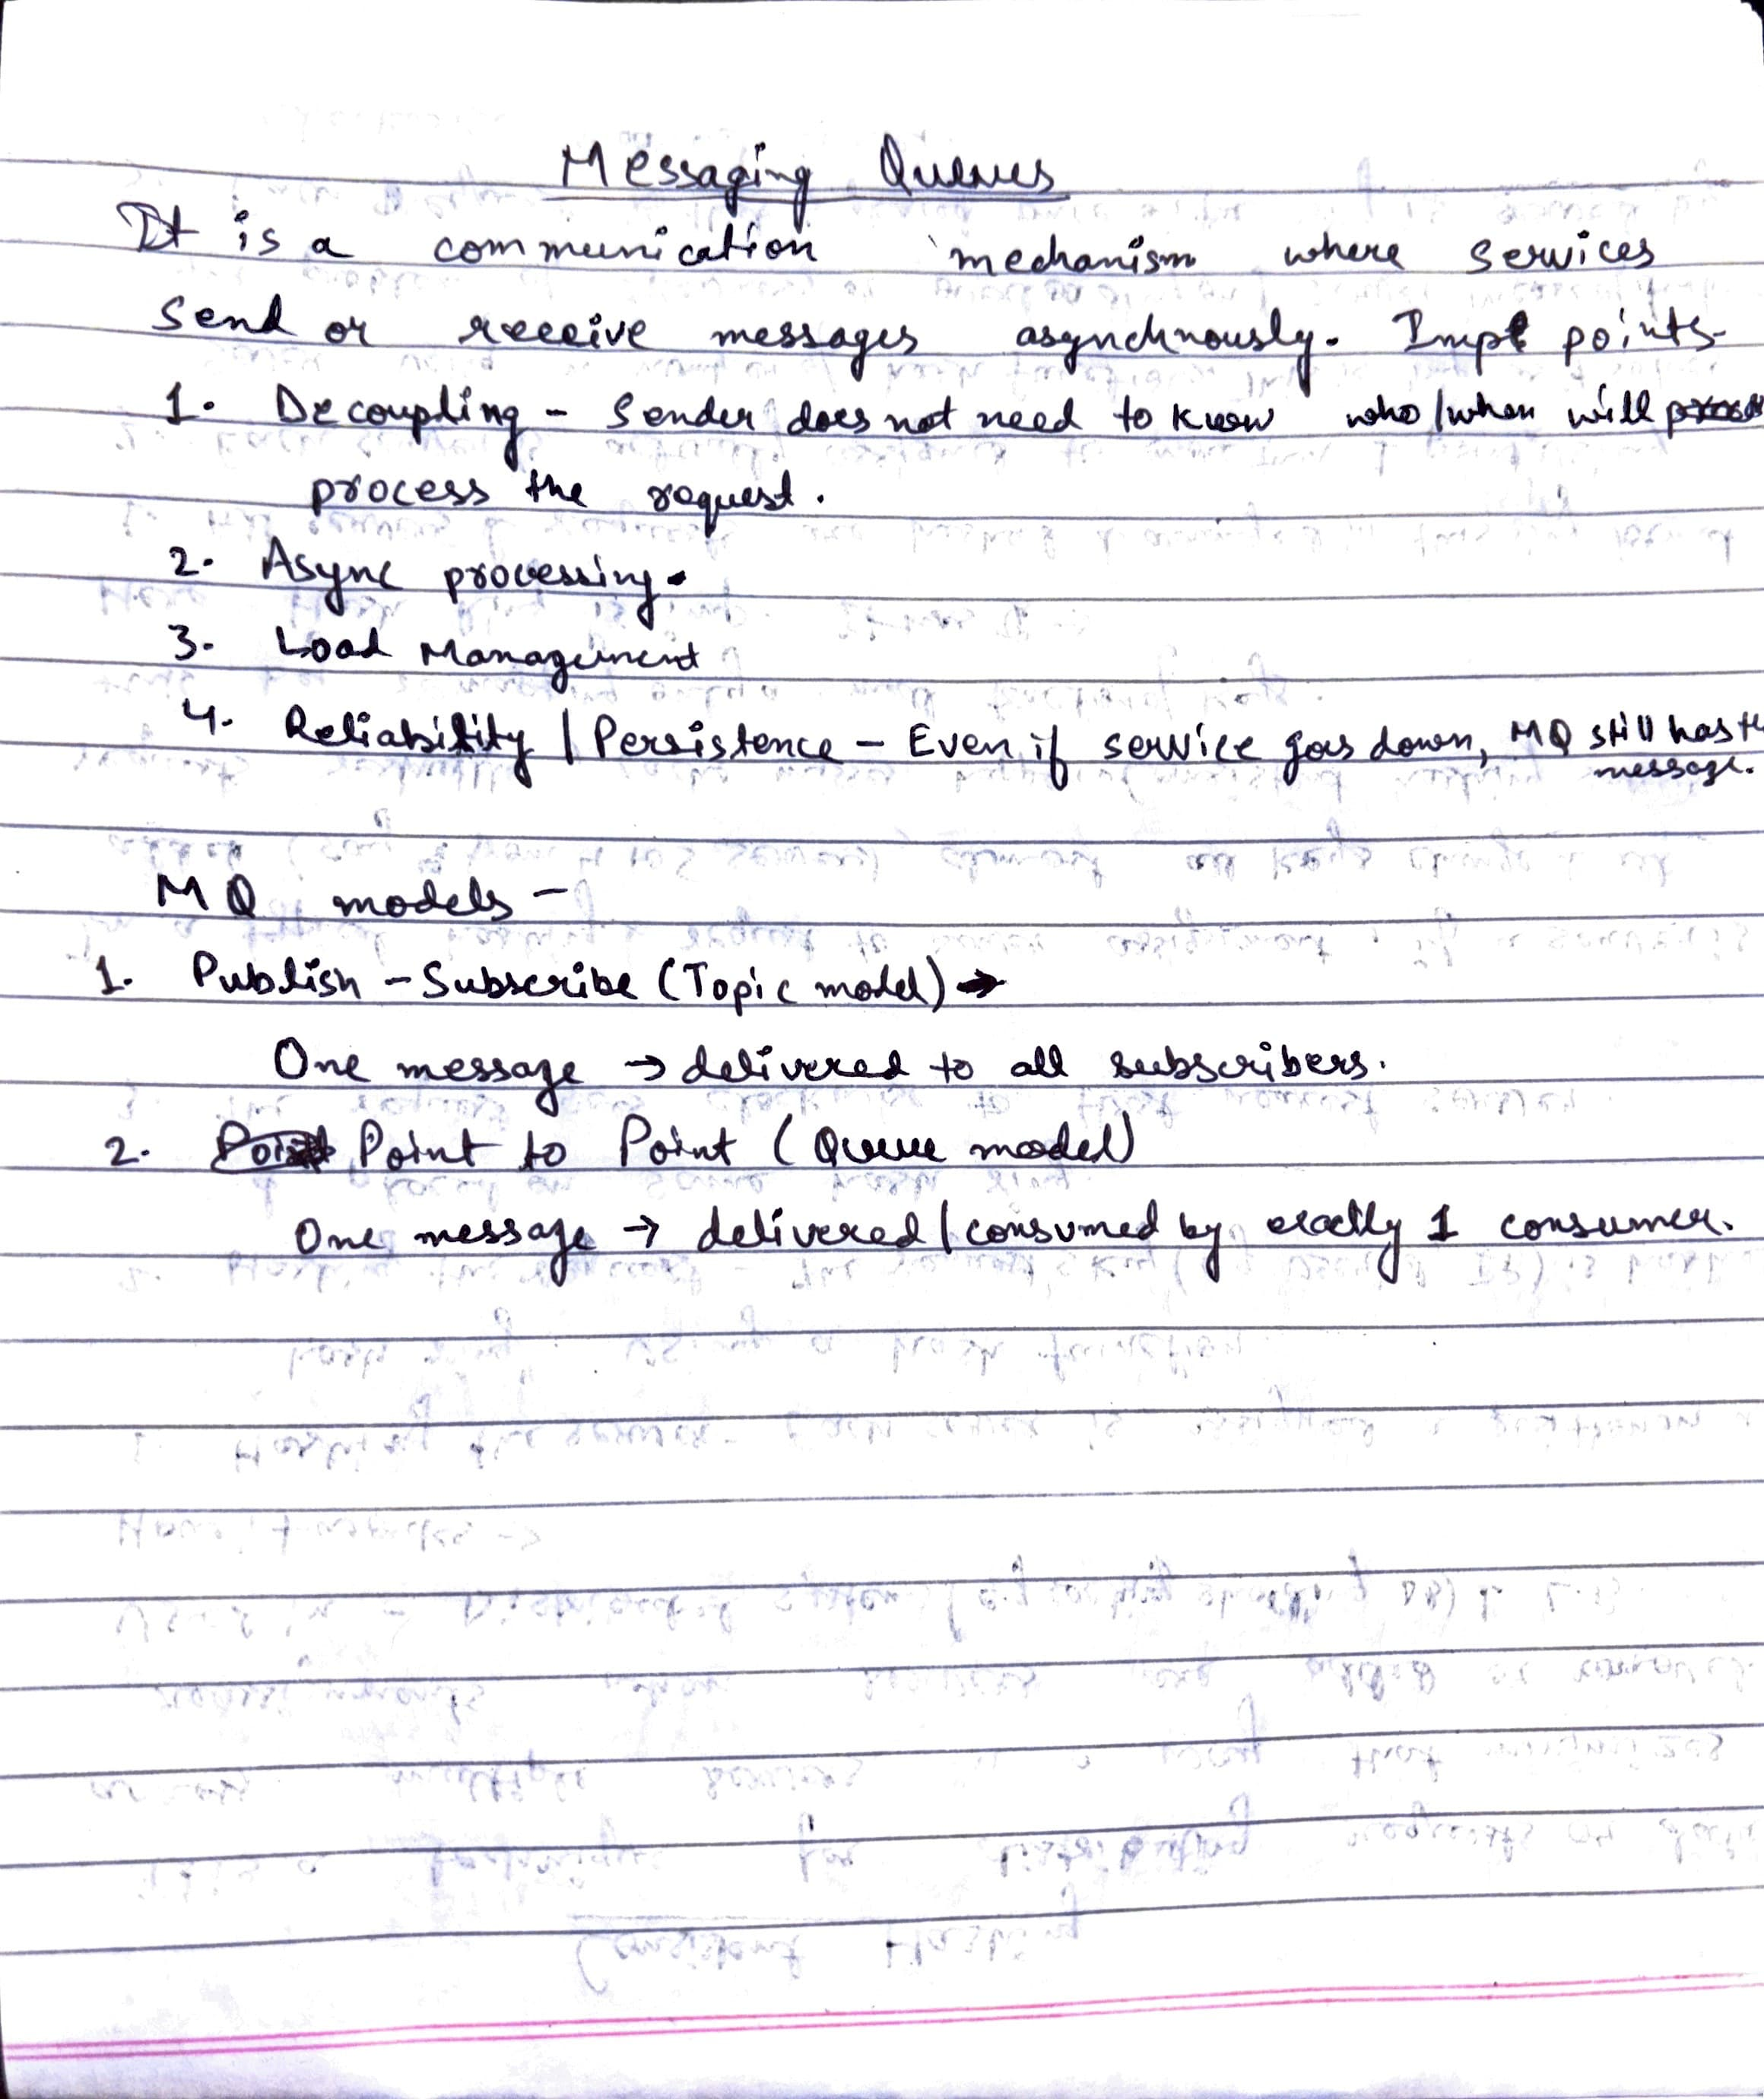 Messaging Queues
It is a communication mechanism where services
send or receive messages asynchnously. Impt points-
1. Decoupling - Sender does not need to know who/when will
process the request.
2. Async processing.
3. Load Management
4. Reliability / Persistence - Even if service goes down, MQ still has
message.
MQ models -
1. Publish - Subscribe (Topic model) →
One message → delivered to all subscribers.
2. Point to Point (Queue model)
One message → delivered/consumed by exactly 1 consumer.